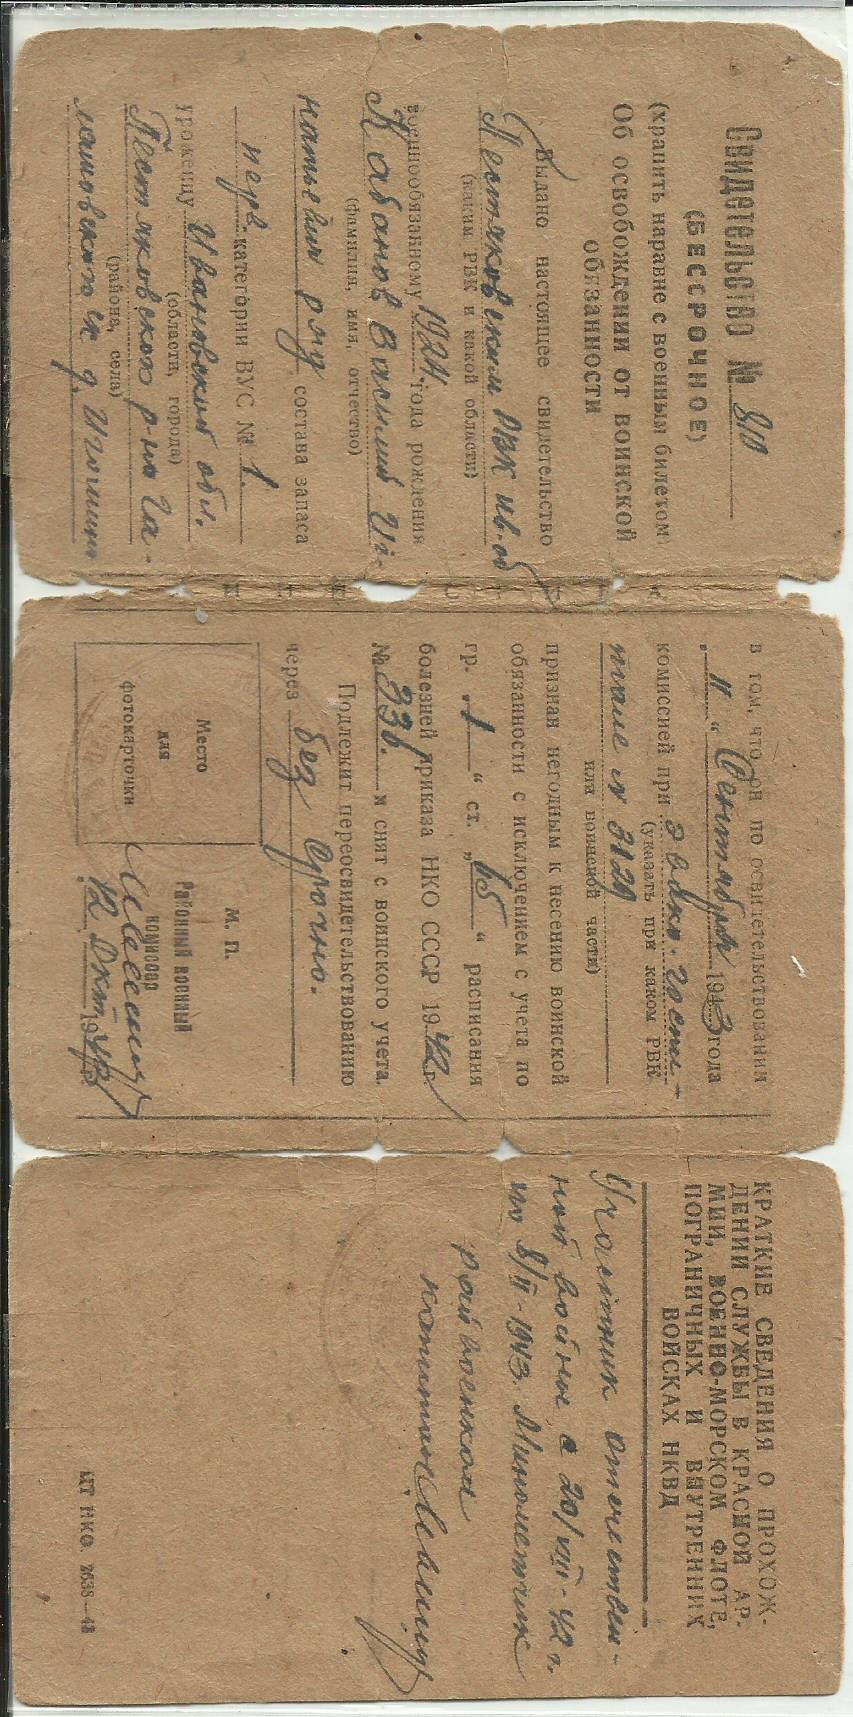 Свидетельство № 810
(БЕССРОЧНОЕ)
(хранить наравне с военным билетом)
Об освобождении от воинской
обязанности
Выдано настоящее свидетельство
Пестяковским РВК Ив. об
(каким РВК и какой области)
военнообязанному 1924 года рождения
Кабанов Василий Иг-
(фамилия, имя, отчество)
натьевич ряд состава запаса
перв. категории ВУС № 1.
уроженцу Ивановской обл.
(области, города)
Пестяковского р-на
(района, села)
в том, что он по освидетельствовании
„11“ Сентября 1943 года
комиссией при Эвако-госпи-
(указать при каком РВК
тале № 3129
или воинской части)
признан негодным к несению воинской
обязанности с исключением с учета по
гр. „1“ ст. „65“ расписания
болезней приказа НКО СССР 1942 г
№ 336. и снят с воинского учета.
Подлежит переосвидетельствованию
через без срочно.
Место
для
фотокарточки
М. П.
Районный военный
комиссар
12 Окт 1943 г.
КРАТКИЕ СВЕДЕНИЯ О ПРОХОЖ-
ДЕНИИ СЛУЖБЫ В КРАСНОЙ АР-
МИИ, ВОЕННО-МОРСКОМ ФЛОТЕ,
ПОГРАНИЧНЫХ И ВНУТРЕННИХ
ВОЙСКАХ НКВД
Участник отечествен-
ной войны с 20/VIII-42 г.
по 8/II-1943. Минометчик
райвоенком
капитан
МТ НКО 2638—43